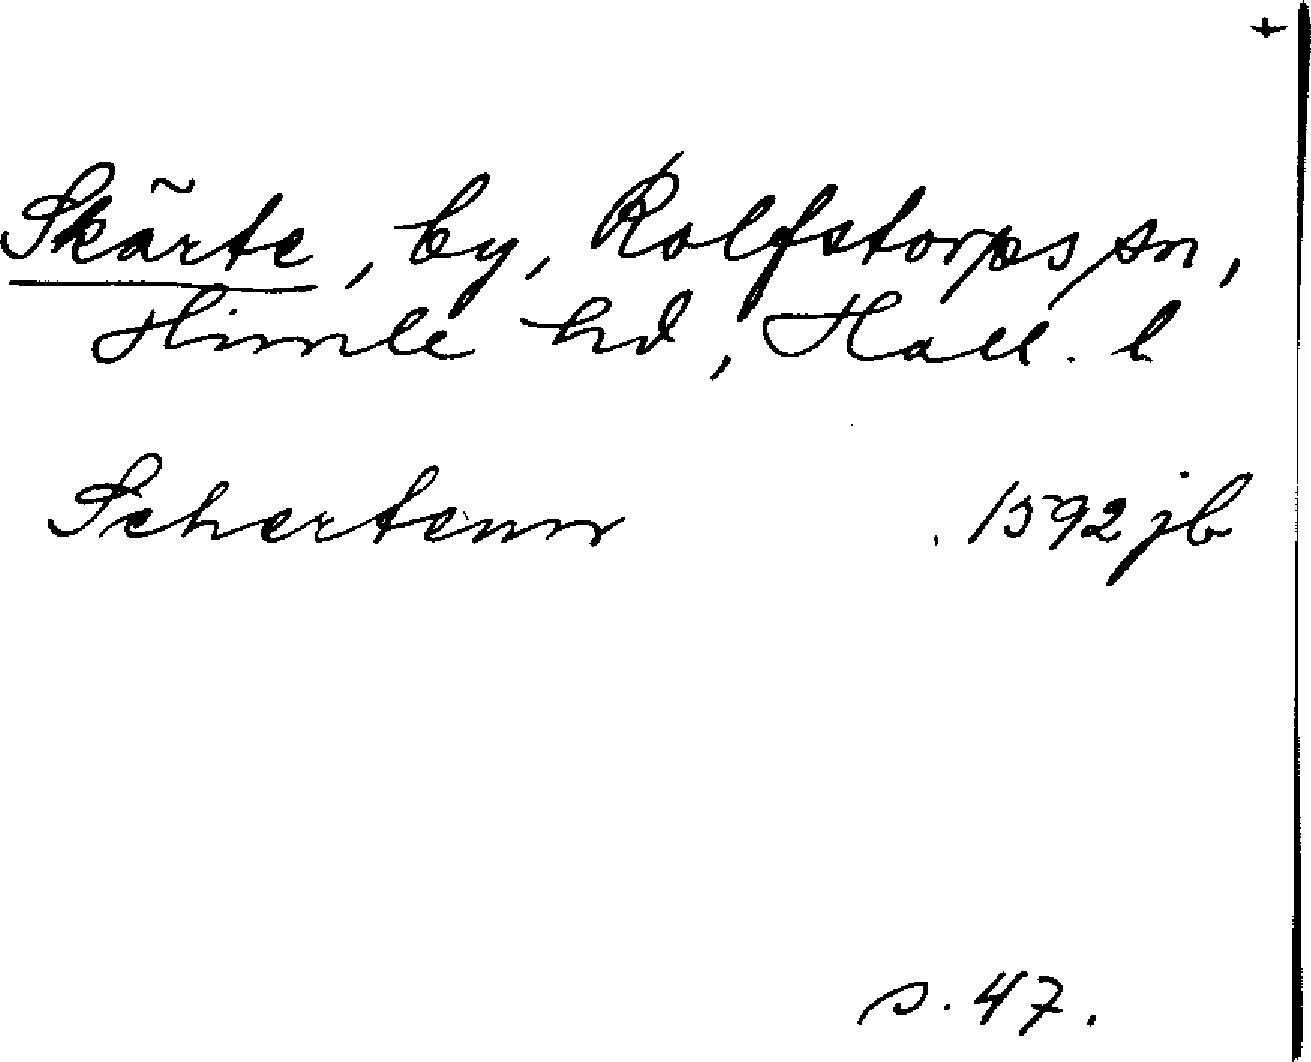 +
Skärte, by, Rolfstorps sn,
Himle hd, Hall. l
Schertenn 1592 jb
s. 47.